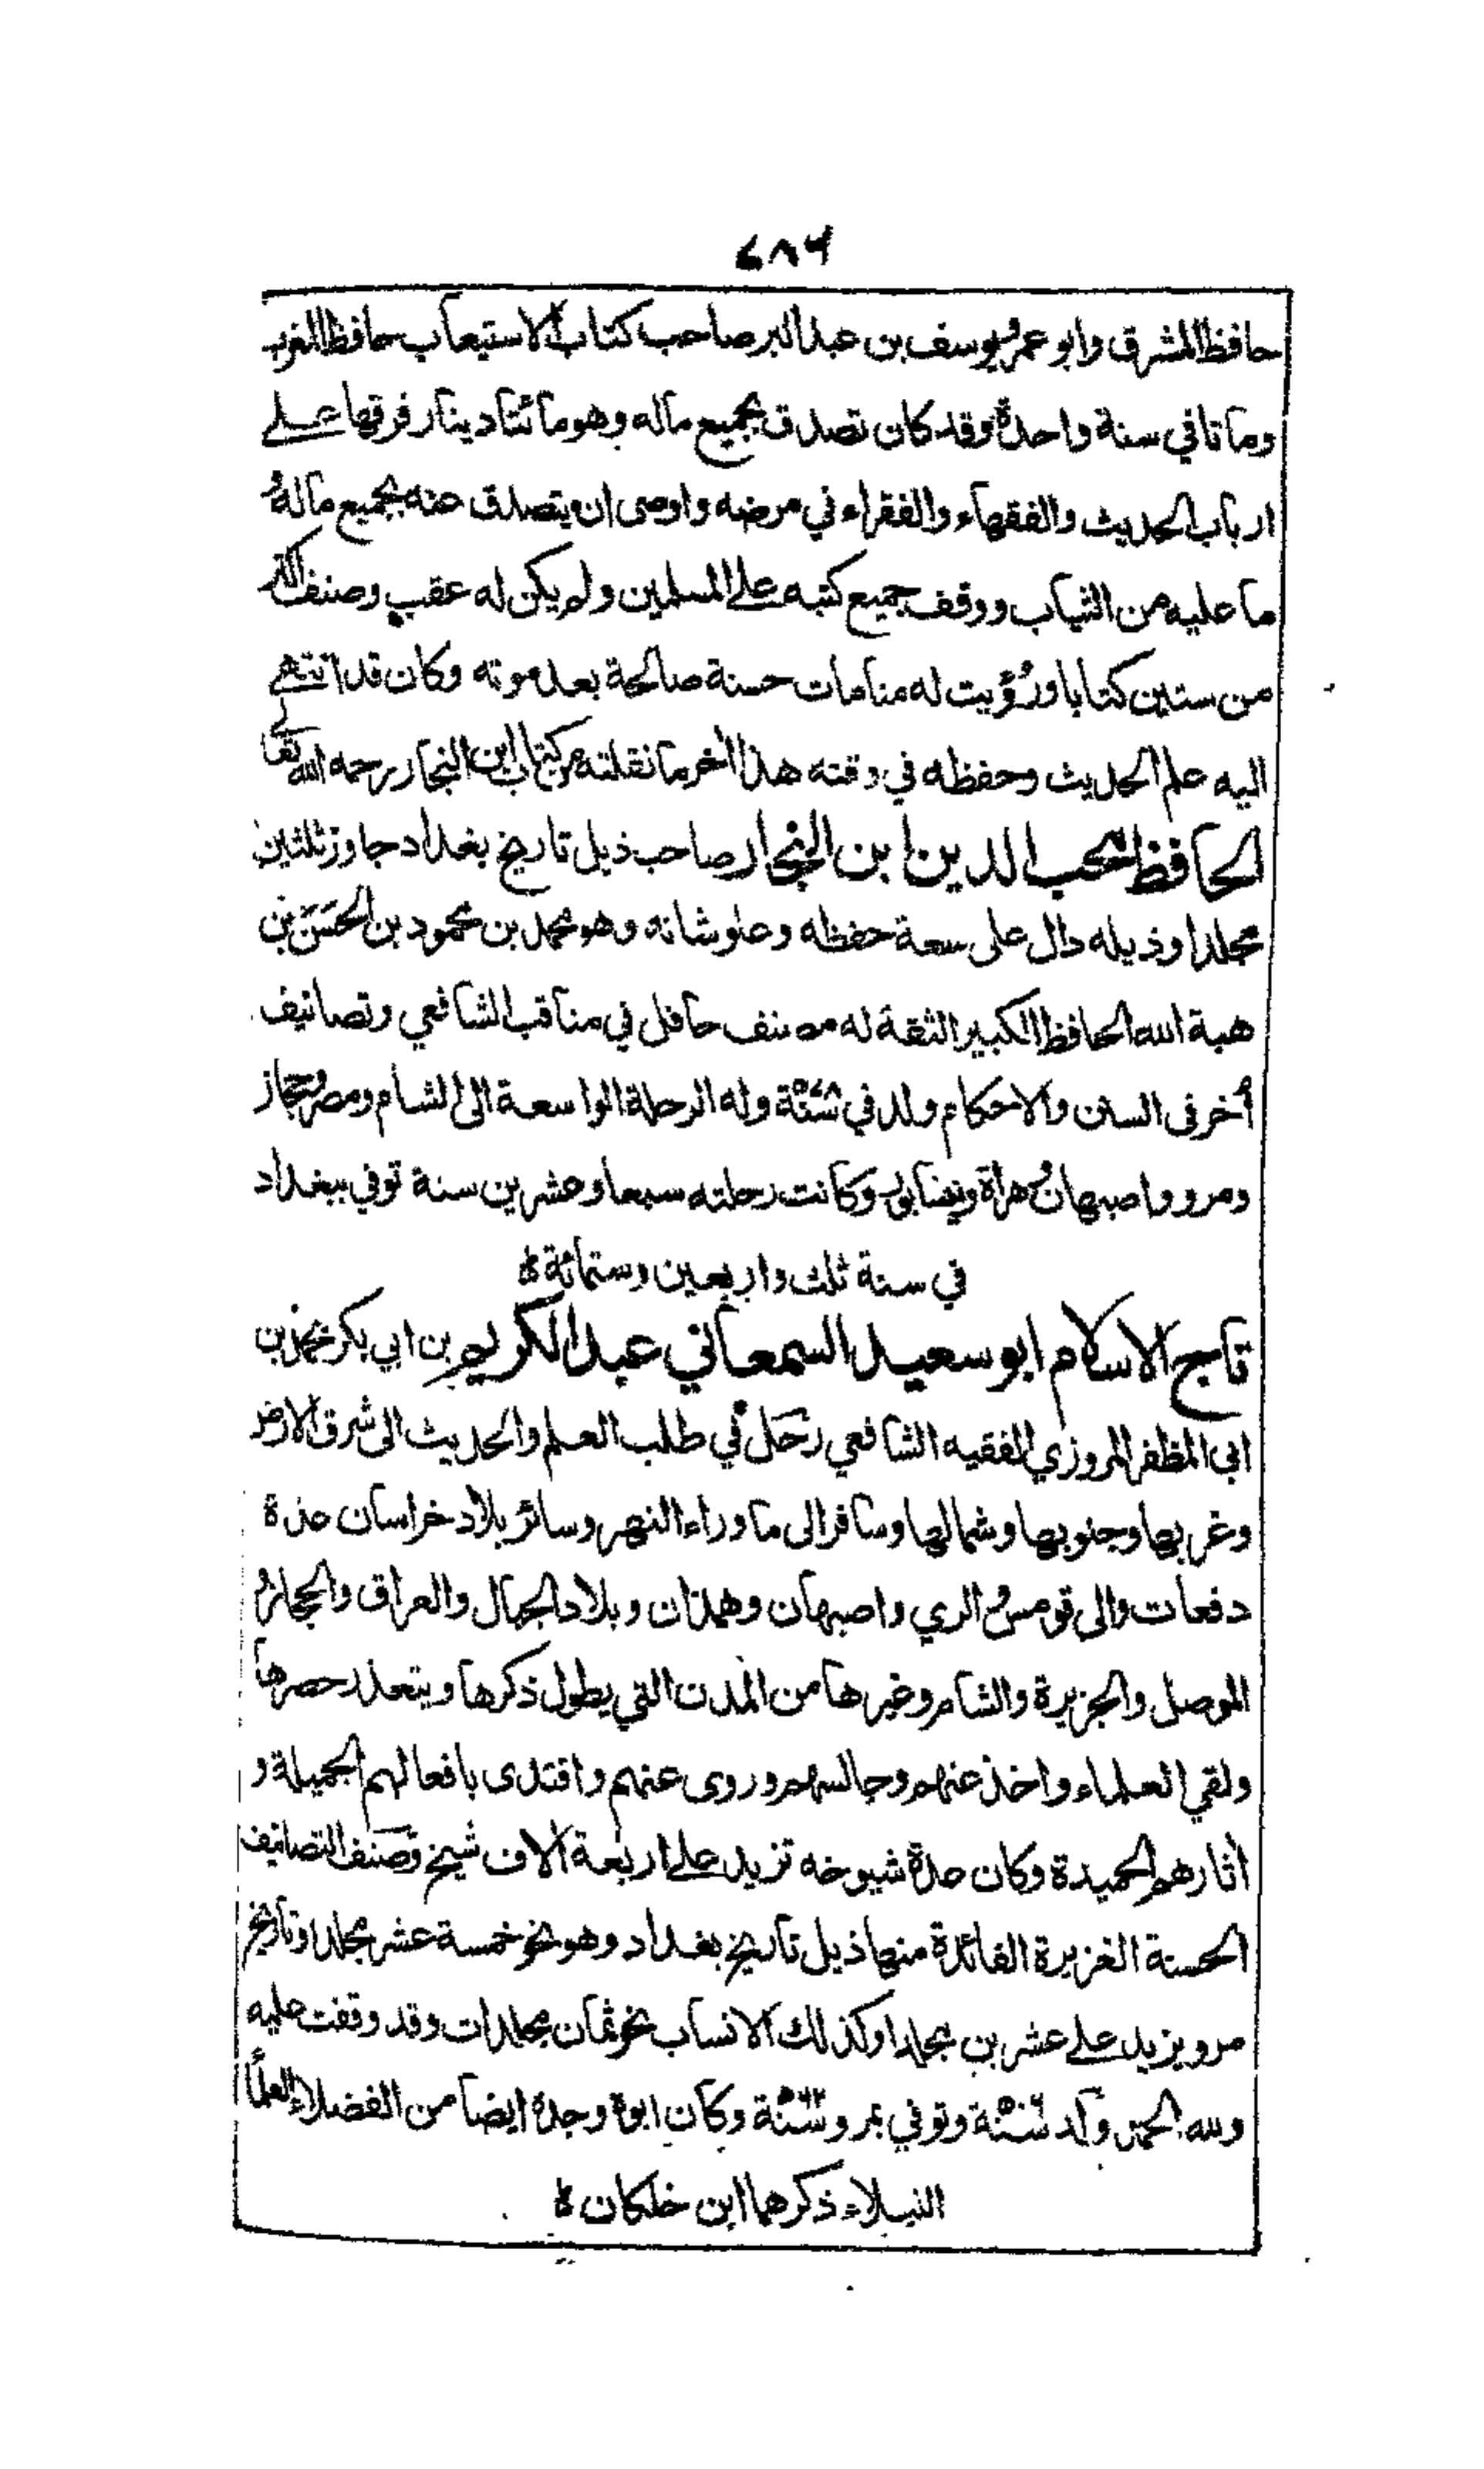 ٤٨٦
حافظ المشرق وابو عمر و يوسف بن عبد البر صاحب كتاب الاستيعاب حافظ المغرب
وماتا في سنة واحدة وقد كان تصدق بجميع ماله وهو مائتا دينار فرقها على
ارباب الحديث والفقهاء والفقراء في مرضه واوصى ان يتصدق عنه بجميع ماله و
ما عليه من الثياب ووقف جميع كتبه على المسلمين ولم يكن له عقب وصنف اكثر
من ستين كتابا ورؤيت له منامات حسنة صالحة بعد موته وكان قد انتهى
اليه علم الحديث وحفظه في وقته هذا اخر ما نقلته من كتاب ابن النجار رحمه الله تعالى
الحافظ محب الدين ابن النجار صاحب ذيل تاريخ بغداد جاوز ثلثين
مجلدا وذيله دال على سعة حفظه وعلو شانه وهو محمد بن محمود بن الحسن بن
هبة الله الحافظ الكبير الثقة له مصنف حافل في مناقب الشافعي وتصانيف
أخر في السنن والاحكام ولد في سنة ٥٧٨ وله الرحلة الواسعة الى الشام ومصر وحجاز
ومرو واصبهان وهراة ونيسابور وكانت رحلته سبعا وعشرين سنة توفي ببغداد
في سنة ثلث واربعين وستمائة
تاج الاسلام ابو سعيد السمعاني عبد الكريم بن ابي بكر محمد بن
ابي المظفر المروزي الفقيه الشافعي رحل في طلب العلم والحديث الى شرق الارض
وغربها وجنوبها وشمالها وسافر الى ما وراء النهر وسائر بلاد خراسان عدة
دفعات والى قومس و الري واصبهان وهمذان وبلاد الجبال والعراق والحجاز و
الموصل والجزيرة والشام وغيرها من المدن التي يطول ذكرها ويتعذر حصرها
ولقي العلماء واخذ عنهم وجالسهم وروى عنهم واقتدى بافعالهم الجميلة و
أثارهم الحميدة وكان عدة شيوخه تزيد على اربعة ألاف شيخ وصنف التصانيف
الحسنة الغزيرة الفائدة منها ذيل تاريخ بغداد وهو نحو خمسة عشر مجلدا وتاريخ
مرو يزيد على عشرين مجلدا وكذلك الانساب نحو ثمان مجلدات وقد وقفت عليه
ولله الحمد ولد سنة ٥٠٦ وتوفي بمرو سنة ٥٦٢ وكان ابوه وجده ايضا من الفضلاء العلماء
النبلاء ذكرهما ابن خلكان